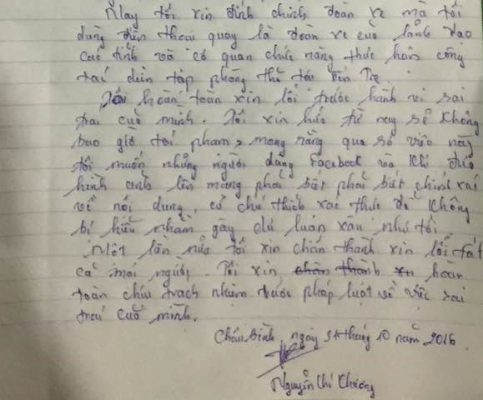 Nay tôi xin đính chính đoàn xe mà tôi
dùng điện thoại quay là đoàn xe của lãnh đạo
các tỉnh và cơ quan chức năng thực hiện công
tác diễn tập phòng thủ tại Bến Tre
Tôi hoàn toàn xin lỗi trước hành vi sai
trái của mình. Tôi xin hứa từ nay sẽ không
bao giờ tái phạm, mong rằng qua sự việc này
tôi muốn những người dùng Facebook và khi đưa
hình ảnh lên mạng phải biết chính xác
về nội dung, có chú thích xác thực để không
bị hiểu nhầm gây dư luận xấu như tôi
Một lần nữa tôi xin chân thành xin lỗi tất
cả mọi người. Tôi xin chân thành xin hoàn
toàn chịu trách nhiệm trước pháp luật về việc sai
trái của mình.
Châu Bình, ngày tháng 10 năm 2016
Nguyễn Chí Khương